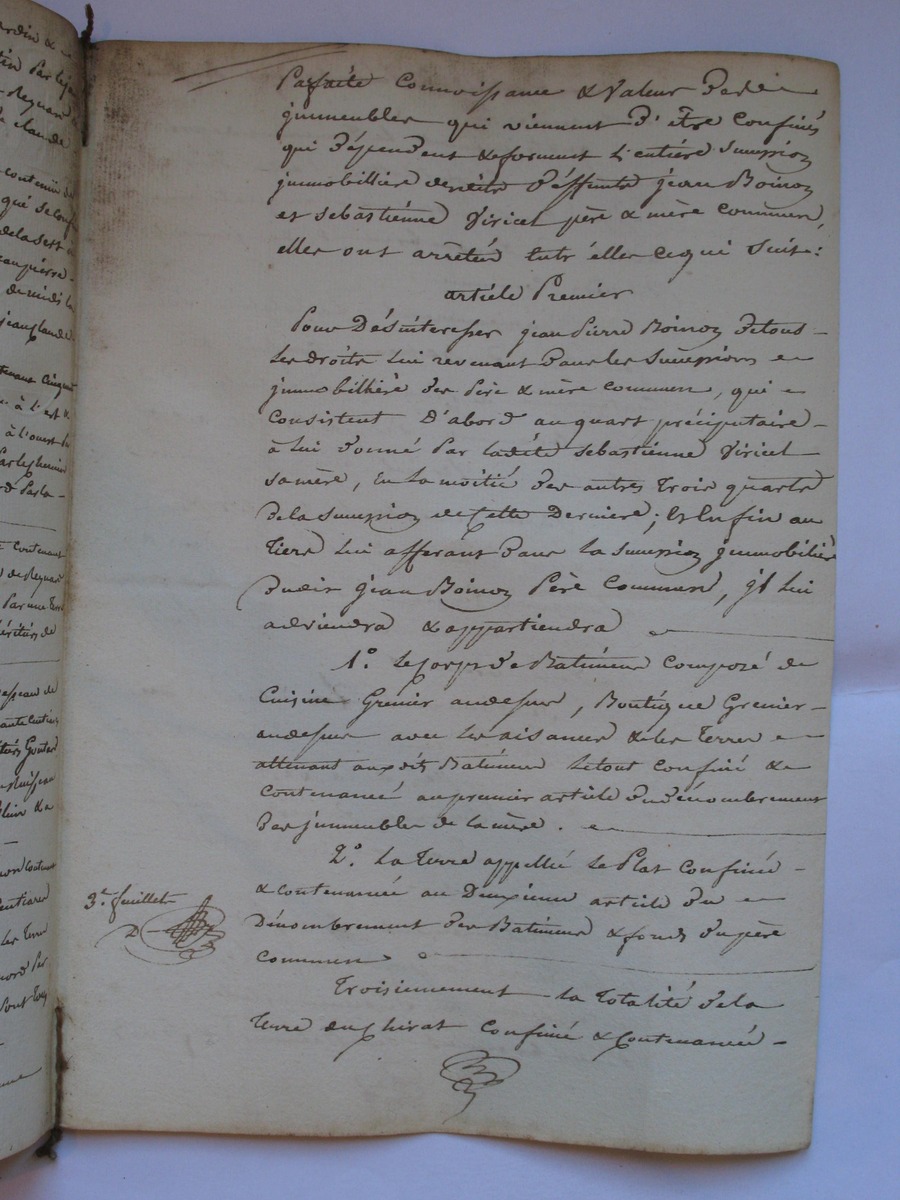 Parfaite Connoissance & Valeur desd.
jmmeubles qui viennent d'être Confinés
qui dépendent & forment L'entière Succession
jmmobillière desdits déffunts jean Boinon
et sebastiénne Viricel père & mère Communs,
elles ont arrêtés Entr'élles cequi Suit:
article Premier
Pour Désintéresser jean Pierre Boinon detous
Les droits Lui revenant dans les Successions
jmmobilhère des Père & mère Communs, qui
Consistent D'abord auquart préciputaire
à Lui donné Par Ladite sebastienne Viricel
samère, En La moitié des autres Trois quarts
dela Succession de Cette Derniere; Et Enfin au
Tiers Lui afferant dans La Succession jmmobilière
dudit jean Boinon Père Commun, jl Lui
adviendra & appartiendra
1.° Le Corps de Batiment Composé de
Cuisine Grenier audessus, Boutique Grenier
audessus avec Les aisances & les Terres
attenant auxdits Batiments Letout Confiné &
Contenancé aupremier article du dénombrement
des jmmeubles de la mère.
2.° La Terre appellée Le Plat Confinée
& contenancée au Deuxieme article du
Dénombrement des Batiments & fonds dupère
Commun
Troisiemement La Totalité dela
Terre du Chirat Confiné & Contenancée
3.e feuillet
jardin &
Par
Regnard
de claude
contenu
qui se
dela
de midi
jean Claude
Contenant Cinquante
à l'est &
à l'ouest
Par le chemin
Contenant
de Regnard
Par une Terre
héritiers de
Les Terres
nord Par